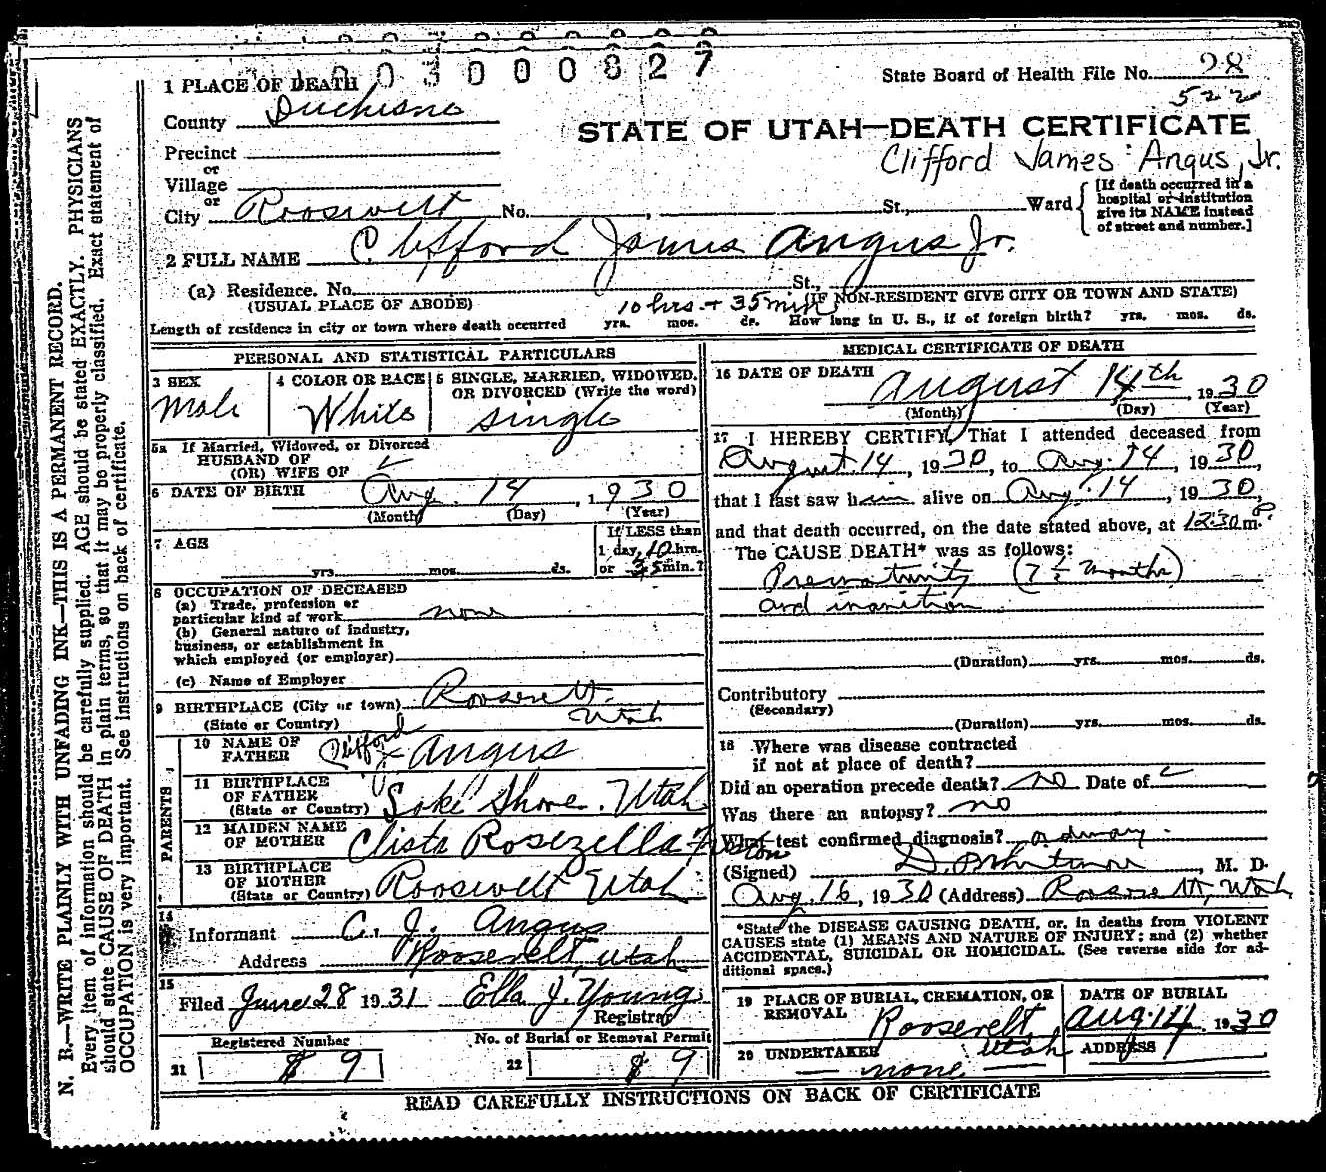 003000827
1 PLACE OF DEATH
State Board of Health File No. 28
522
County Duchesne
STATE OF UTAH—DEATH CERTIFICATE
Clifford James Angus, Jr.
Precinct
or
Village
or
City Roosevelt No. , St., Ward
[If death occurred in a
hospital or institution
give its NAME instead
of street and number.]
2 FULL NAME Clifford James Angus Jr.
(a) Residence. No. St.,
(USUAL PLACE OF ABODE) (IF NON-RESIDENT GIVE CITY OR TOWN AND STATE)
10 hrs + 35 min
Length of residence in city or town where death occurred yrs. mos. ds. How long in U. S., if of foreign birth? yrs. mos. ds.
PERSONAL AND STATISTICAL PARTICULARS
3 SEX 4 COLOR OR RACE 5 SINGLE, MARRIED, WIDOWED,
OR DIVORCED (Write the word)
Male White single
5a If Married, Widowed, or Divorced
HUSBAND OF
(OR) WIFE OF
6 DATE OF BIRTH Aug. 14, 1930
(Month) (Day) (Year)
7 AGE
yrs. mos. ds.
If LESS than
1 day, 10 hrs.
or 35 min.?
8 OCCUPATION OF DECEASED
(a) Trade, profession or
particular kind of work none
(b) General nature of industry,
business, or establishment in
which employed (or employer)
(c) Name of Employer
9 BIRTHPLACE (City or town) Roosevelt
(State or Country) Utah
PARENTS
10 NAME OF
FATHER Clifford J. Angus
11 BIRTHPLACE
OF FATHER
(State or Country) Lake Shore. Utah
12 MAIDEN NAME
OF MOTHER Clista Rosezella
13 BIRTHPLACE
OF MOTHER
(State or Country) Roosevelt Utah
14
Informant C. J. Angus
Address Roosevelt Utah
15
Filed June 28 1931 Ella J. Young
Registrar
Registered Number No. of Burial or Removal Permit
21 9 22 9
MEDICAL CERTIFICATE OF DEATH
16 DATE OF DEATH August 14th, 1930
(Month) (Day) (Year)
17 I HEREBY CERTIFY, That I attended deceased from
August 14, 1930, to Aug. 14, 1930,
that I last saw him alive on Aug. 14, 1930,
and that death occurred, on the date stated above, at 12:30 P m.
The CAUSE DEATH* was as follows:
Prematurity (7 1/2 months)
and inanition
(Duration) yrs. mos. ds.
Contributory
(Secondary)
(Duration) yrs. mos. ds.
18 Where was disease contracted
if not at place of death?
Did an operation precede death? no Date of
Was there an autopsy? no
What test confirmed diagnosis? ordinary.
(Signed) , M. D.
Aug. 16, 1930 (Address) Roosevelt, Utah
*State the DISEASE CAUSING DEATH, or, in deaths from VIOLENT
CAUSES state (1) MEANS AND NATURE OF INJURY; and (2) whether
ACCIDENTAL, SUICIDAL OR HOMICIDAL. (See reverse side for ad-
ditional space.)
19 PLACE OF BURIAL, CREMATION, OR
REMOVAL Roosevelt, Utah
DATE OF BURIAL
Aug. 14 1930
20 UNDERTAKER none
ADDRESS
READ CAREFULLY INSTRUCTIONS ON BACK OF CERTIFICATE
N. B.—WRITE PLAINLY WITH UNFADING INK—THIS IS A PERMANENT RECORD.
Every item of information should be carefully supplied. AGE should be stated EXACTLY. PHYSICIANS
should state CAUSE OF DEATH in plain terms, so that it may be properly classified. Exact statement of
OCCUPATION is very important. See instructions on back of certificate.